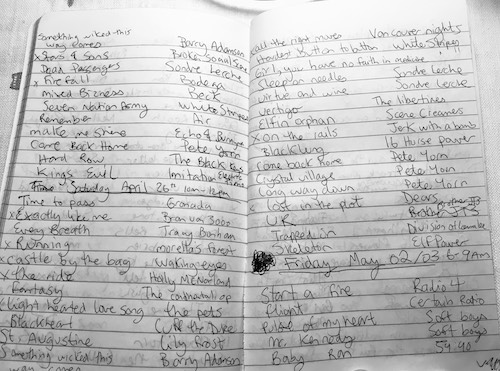 Something wiked this
way comes Barry Adamson
x Stars & Sons Broken Social Scene
Dead Passengers Sondre Lerche
x Firefall
Mixed Bizness Beck
Seven Nation Army White Stripes
Remember Air
make me shine Echo & Bunnymen
Came Back Home Pete Yorn
Hard Row The Black Keys
Kings Evil Imitation Electric
Saturday April 26th 10am-12pm
Time to pass Granada
x Exactly like me
Every Breath Tracy Bonham
x Running Forest
x castle by the bag waking eyes
x the ride Holly McNarland
Fantasy The continental op
Light hearted love song the pets
Blackheart Cuff the Duke
St. Augustine Lily Frost
Something wicked this Barry Adamson
way comes
call the right moves Vancouver nights
Hardest button to button White Stripes
Girl you have no faith in medicine
Sleep on needles Sondre Lerche
virtue and wine Sondre Lerche
vertigo The libertines
Elfin orphan Scene Creamers
x on the rails Jerk with a bomb
Black Lung 16 Horse power
Come back home Pete Yorn
Crystal village Pete Yorn
Long way down Pete Yorn
Lost in the plot Dears
UR
Trapped in Division of Laura Lee
Skeleton Elf Power
Friday May 02/03 6-9AM
Start a fire Radio 4
Flight Certain Ratio
Pulse of my heart Soft boys
mr. Kennedy Soft boys
Baby Ran 54-40